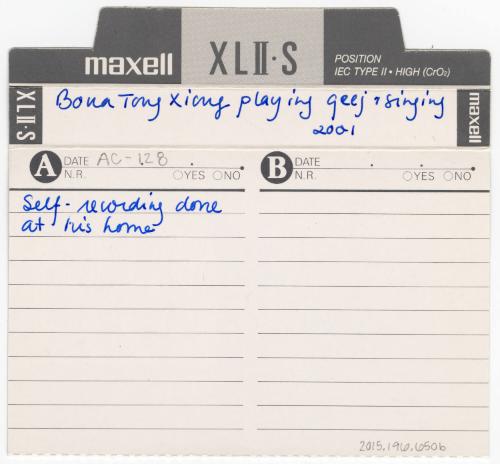 maxell XLII·S POSITION
IEC TYPE II • HIGH (CrO₂)
XLII·S Boua Tong Xiong playing qeej & singing maxell
2001
A DATE AC-128 B DATE
N.R. ○YES ○NO N.R. ○YES ○NO
Self-recording done
at his home
2015.196.650b